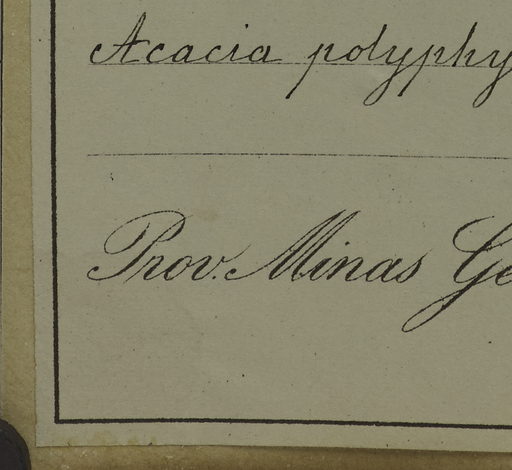 Acacia polyphy
Prov. Minas Ge